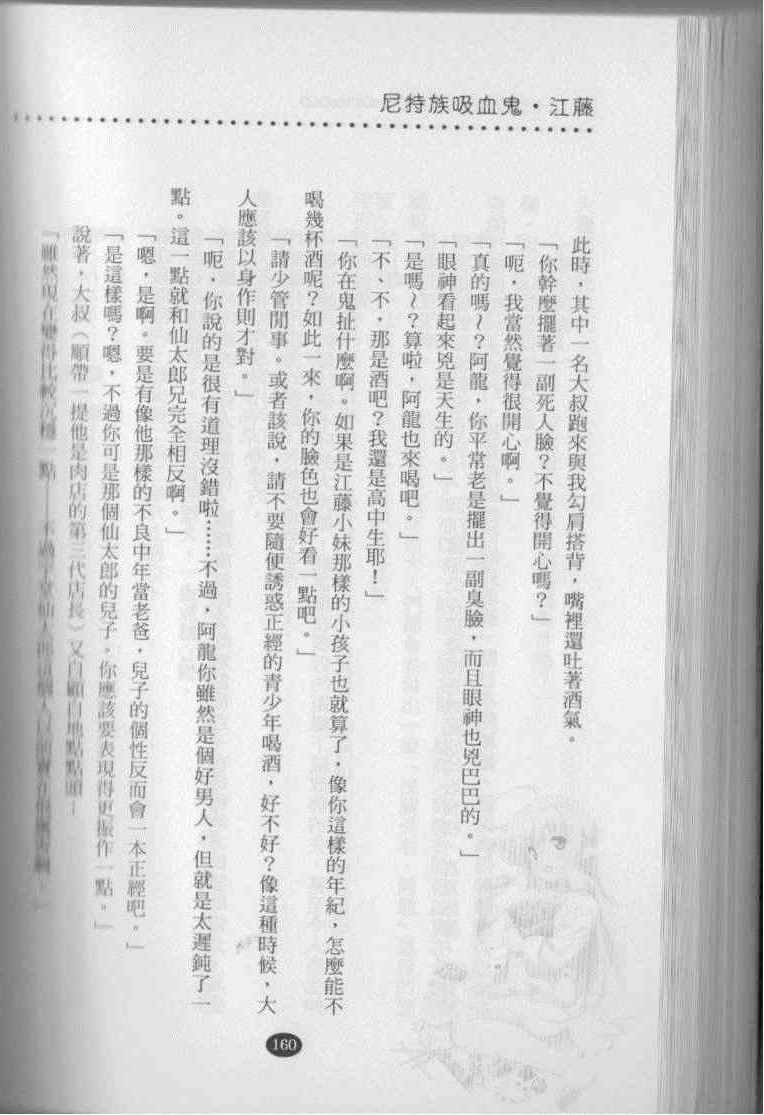 尼特族吸血鬼・江藤
此時，其中一名大叔跑來與我勾肩搭背，嘴裡還吐著酒氣。
「你幹麼擺著一副死人臉？不覺得開心嗎？」
「呃，我當然覺得很開心啊。」
「真的嗎～？阿龍，你平常老是擺出一副臭臉，而且眼神也兇巴巴的。」
「眼神看起來兇是天生的。」
「是嗎～？算啦，阿龍也來喝吧。」
「不、不，那是酒吧？我還是高中生耶！」
「你在鬼扯什麼啊。如果是江藤小妹那樣的小孩子也就算了，像你這樣的年紀，怎麼能不
喝幾杯酒呢？如此一來，你的臉色也會好看一點吧。」
「請少管閒事。或者該說，請不要隨便誘惑正經的青少年喝酒，好不好？像這種時候，大
人應該以身作則才對。」
「呃，你說的是很有道理沒錯啦……不過，阿龍你雖然是個好男人，但就是太遲鈍了一
點。這一點就和仙太郎兄完全相反啊。」
「嗯，是啊。要是有像他那樣的不良中年當老爸，兒子的個性反而會一本正經吧。」
「是這樣嗎？嗯，不過你可是那個仙太郎的兒子。你應該要表現得更振作一點。」
說著，大叔（順帶一提他是肉店的第三代店長）又自顧自地點點頭──
「雖然現在變得比較沉穩一點
160